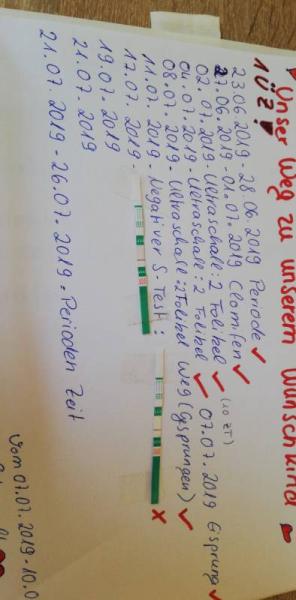 Unser Weg zu unserem Wunschkind
1ÜZ!
23.06.2019 - 28.06.2019 Periode
27.06.2019 - 01.07.2019 Clomifen
02.07.2019 - Ultraschall: 2 Folikel (10 ZT)
04.07.2019 - Ultraschall: 2 Folikel 07.07.2019 Esprung
08.07.2019 - Ultraschall: 2 Folikel Weg (Gsprungen)
11.07.2019 - Negativer S-Test:
17.07.2019 -
19.07.2019
21.07.2019
21.07.2019 - 26.07.2019 - Perioden Zeit
Vom 07.07.2019 - 10.0